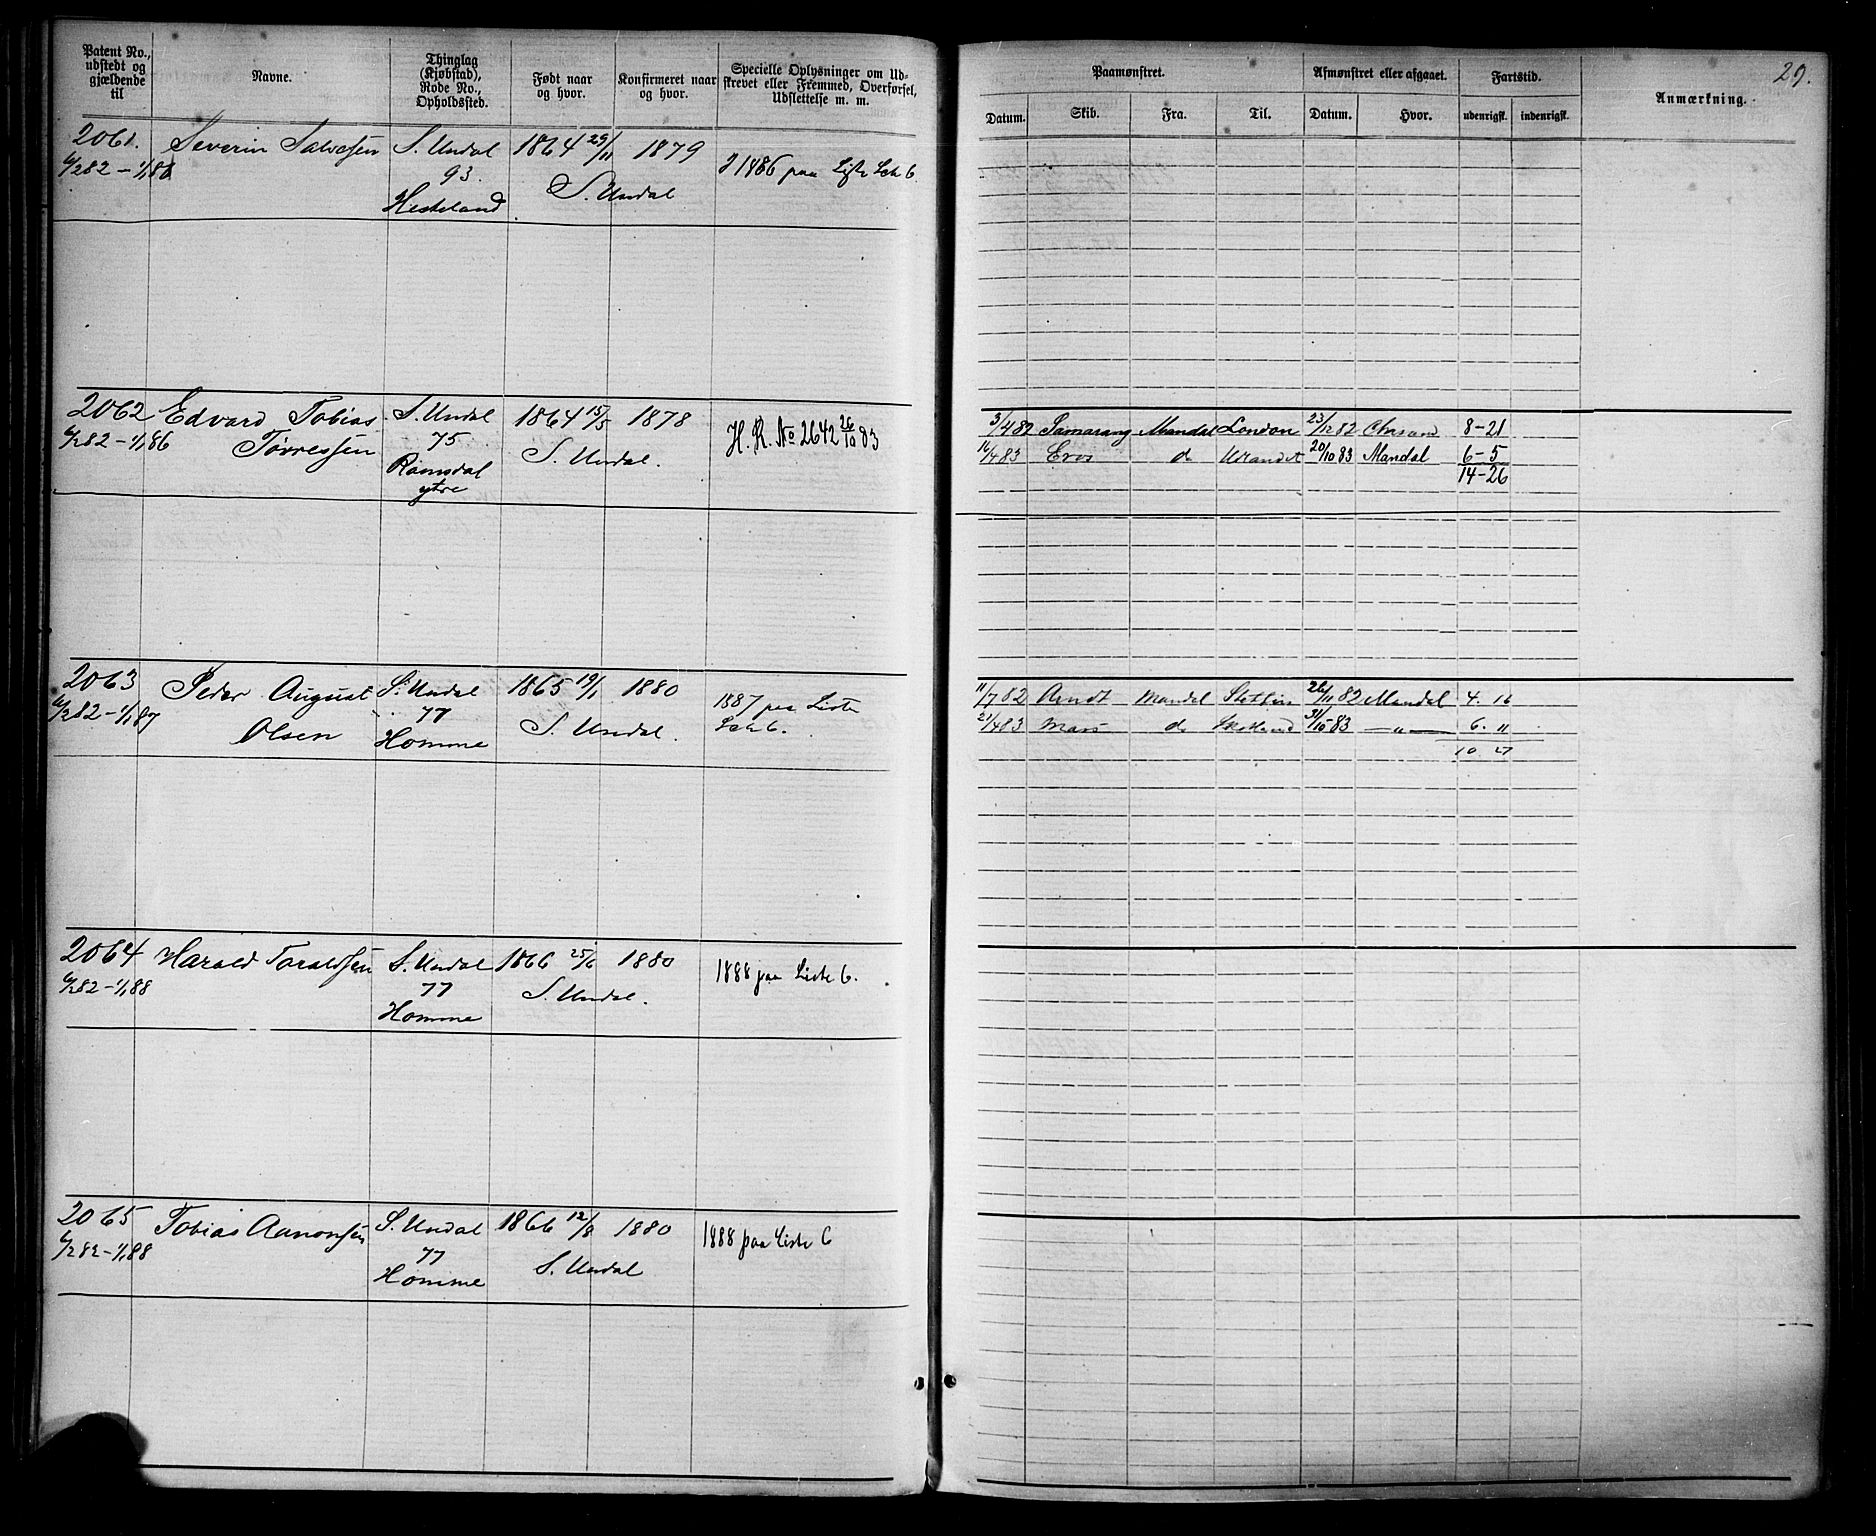 Patent No., udstedt og gjældende til
Navne.
Thinglag (Kjøbstad), Rode No., Opholdssted.
Født naar og hvor.
Konfirmeret naar og hvor.
Specielle Oplysninger om Udskrevet eller Fremmed, Overførsel, Udslettelse m. m.
Paamønstret.
Afmønstret eller afgaaet.
Fartstid.
Anmærkning.
29.
Datum. Skib. Fra. Til. Datum. Hvor. udenrigsk. indenrigsk.
2061. Severin Salvesen S. Undal 1864 29/11 1879
6/2 82 – 1/1 86 93. S. Undal 1886 paa Liste Lit. 6.
Hesteland
2062 Edvard Tobias S. Undal 1864 15/5 1878 H. R. No 2642 26/10 83
6/2 82 – 1/1 86 Tørressen 75 S. Undal.
Ramsdal
ytre
3/4 82 Samarang Mandal London 23/12 82 Chrsand 8–21
16/4 83 Eros do 20/10 83 Mandal 6–5
14–26
2063 Peder August S. Undal 1865 19/1 1880 1887 paa Liste
6/2 82 – 1/1 87 Olsen 77 S. Undal. Lit. 6.
Homme
11/7 82 Arndt Mandal Stettin 26/11 82 Mandal 4. 16
21/4 83 Mars do Skotland 31/10 83 —"— 6. 11
10. 27
2064 Harald Toraldsen S. Undal 1866 25/6 1880 1888 paa Liste 6.
6/2 82 – 1/1 88 77 S. Undal.
Homme
2065 Tobias Aanonsen S. Undal 1866 12/8 1880 1888 paa Liste 6
6/2 82 – 1/1 88 77 S. Undal
Homme